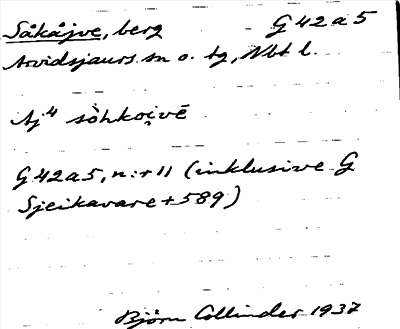 Såkåjve, berg G 42 a 5
Arvidsjaurs sn o. tg, Nbt l.
Aj⁴ sòhkoi̭vē
G 42 a 5, n:r 11 (inklusive G
Sjeikavare + 589)
Björn Collinder 1937